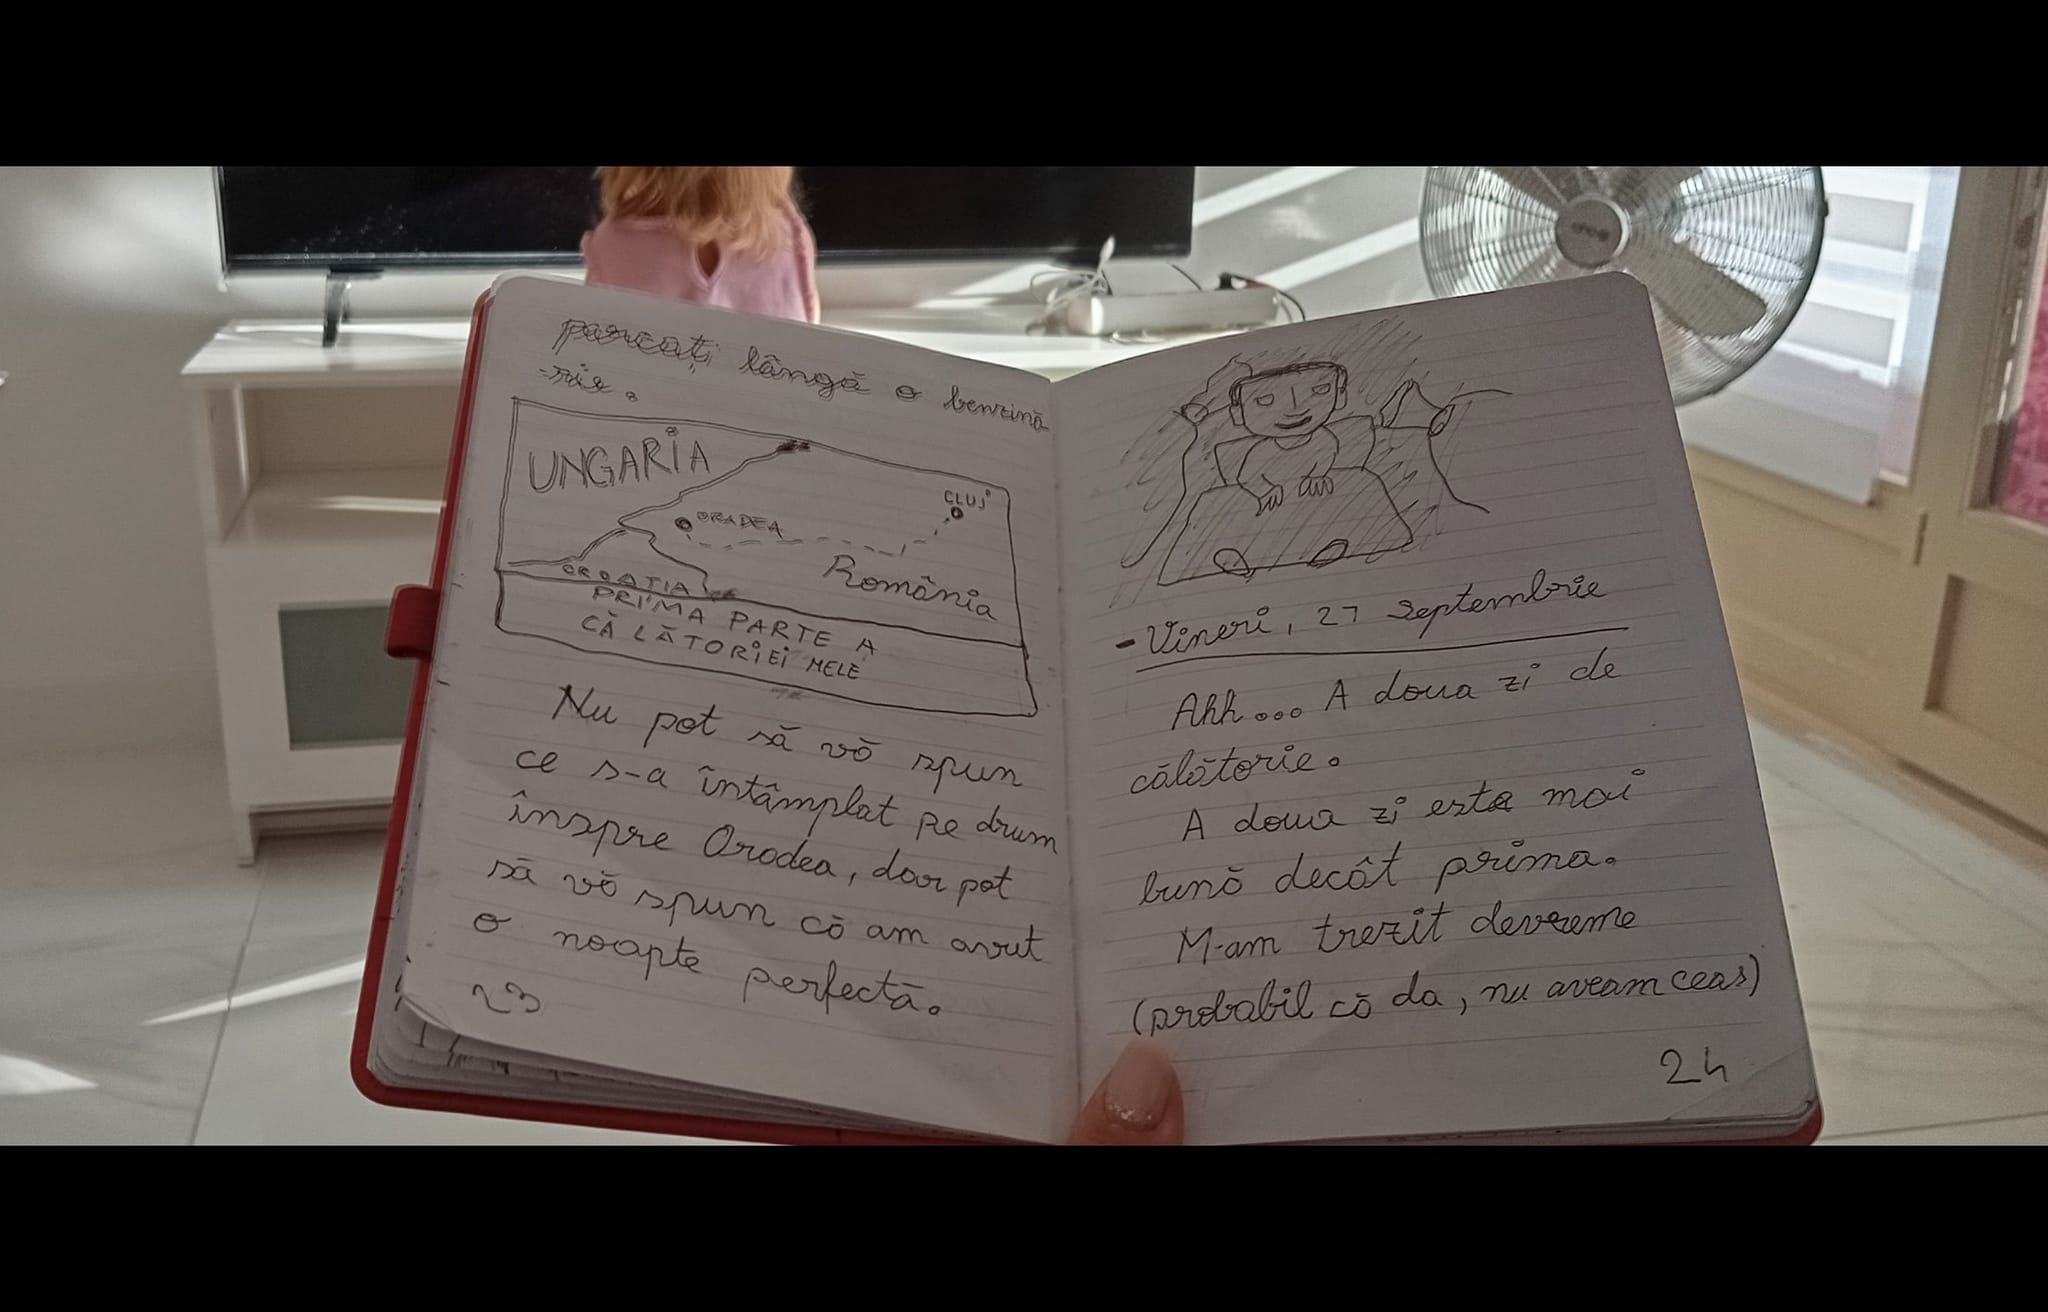 parcați lângă o benzină
-rie.
UNGARIA
CLUJ
ORADEA
România
CROAȚIA
PRIMA PARTE A
CĂLĂTORIEI MELE
Nu pot să vă spun
ce s-a întâmplat pe drum
înspre Oradea, dar pot
să vă spun că am avut
o noapte perfectă.
23
- Vineri, 27 septembrie
Ahh... A doua zi de
călătorie.
A doua zi este mai
bună decât prima.
M-am trezit devreme
(probabil că da, nu aveam ceas)
24